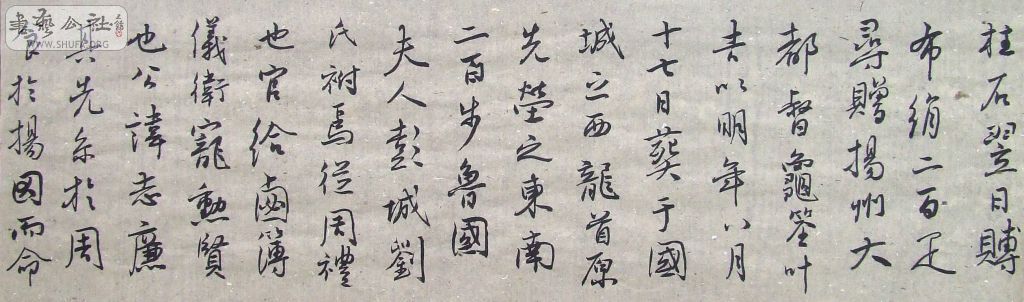 柱石翌日賻
布絹二百疋
尋贈揚州大
都督龜筮叶
吉以明年八月
十七日葬于國
城之西龍首原
先塋之東南
二百步魯國
夫人彭城劉
氏祔焉從周禮
也官給鹵簿
儀衛寵勳賢
也公諱志廉
其先系於周
於揚因而命
書藝公社
www.SHUFA.ORG